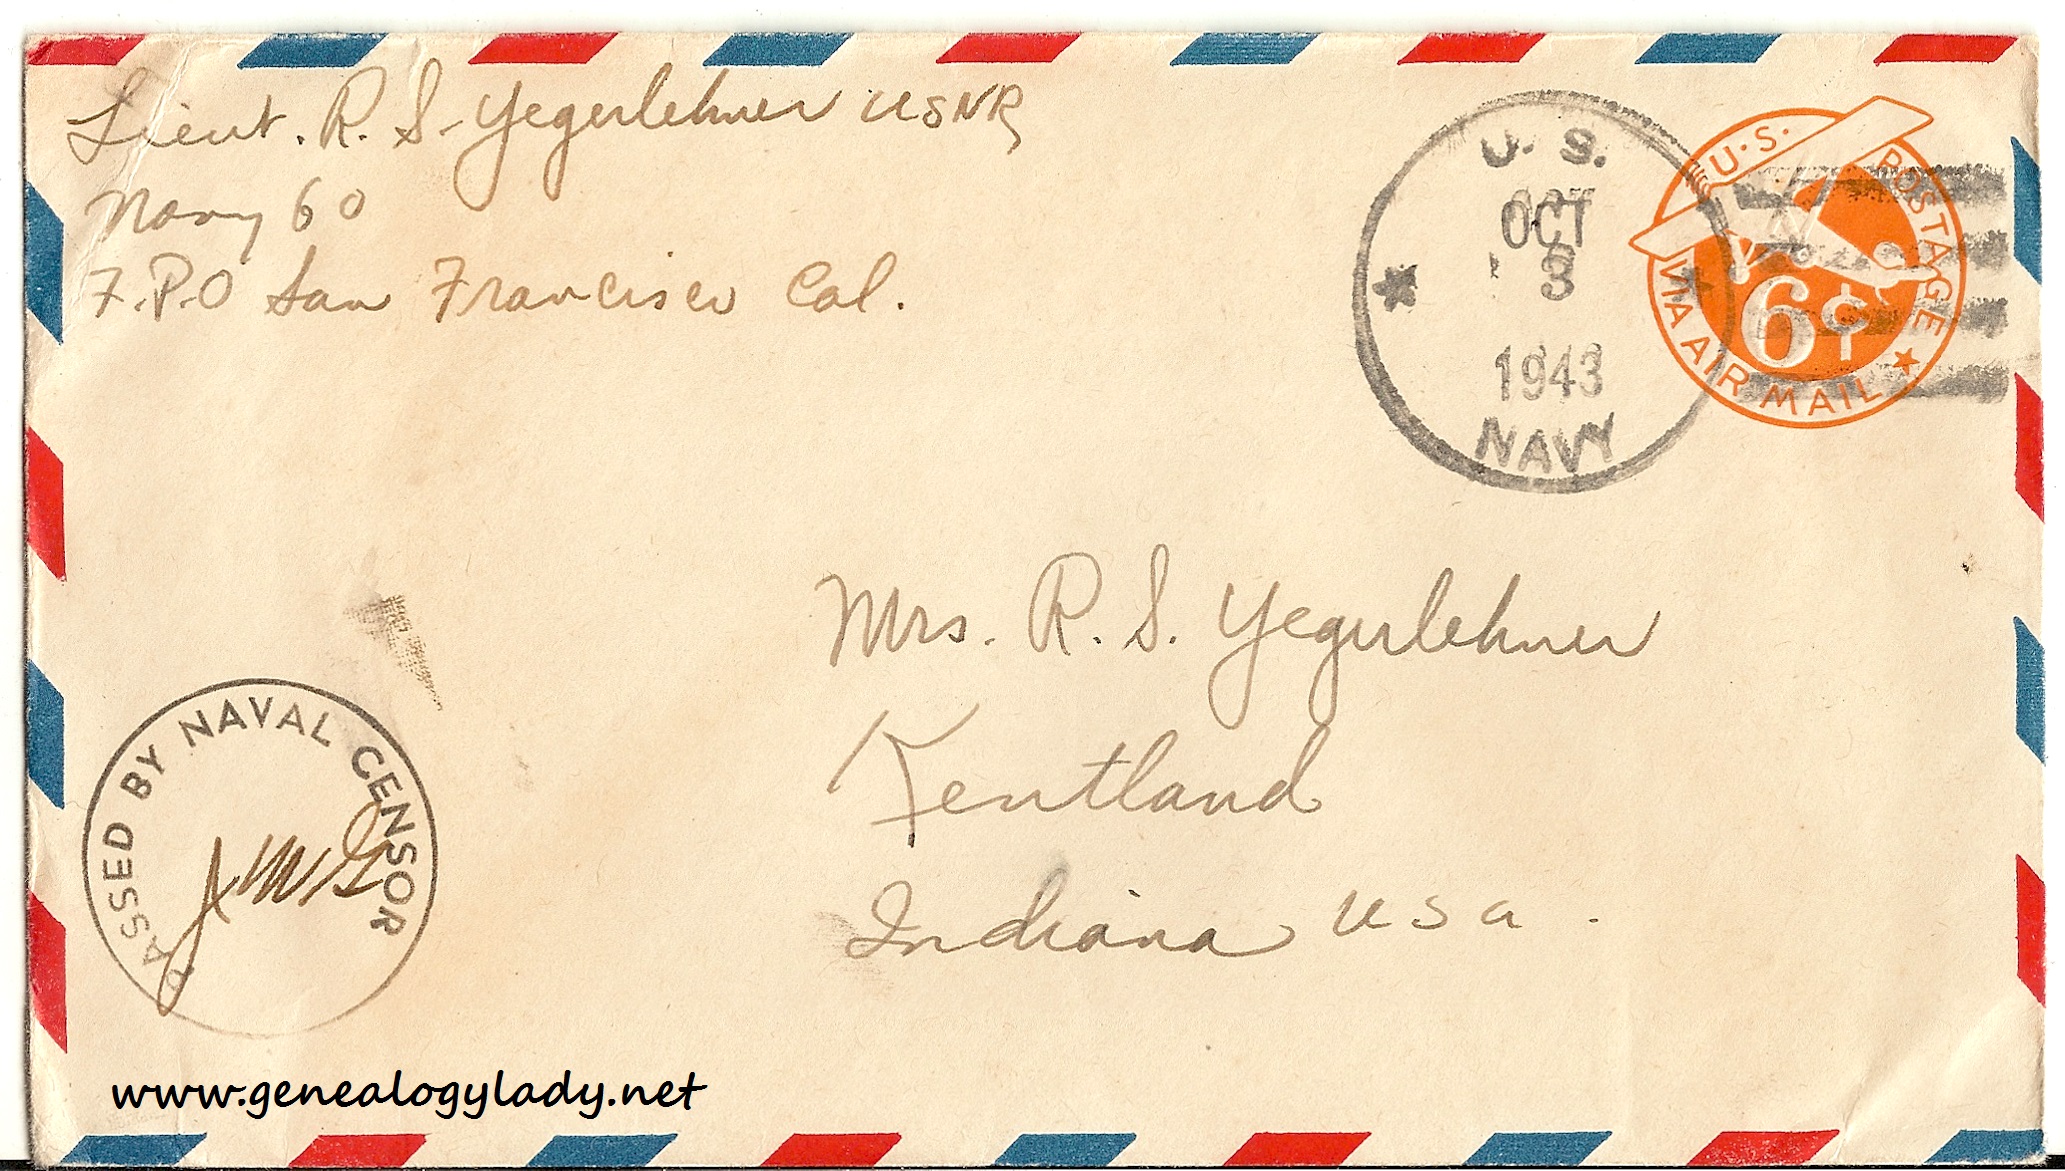 Lieut. R. S. Yegerlehner USNR
Navy 60
F.P.O San Francisco Cal.
U. S.
OCT
3
1943
NAVY
U.S. POSTAGE
6¢
VIA AIR MAIL
Mrs. R. S. Yegerlehner
Kentland
Indiana USA.
PASSED BY NAVAL CENSOR
www.genealogylady.net